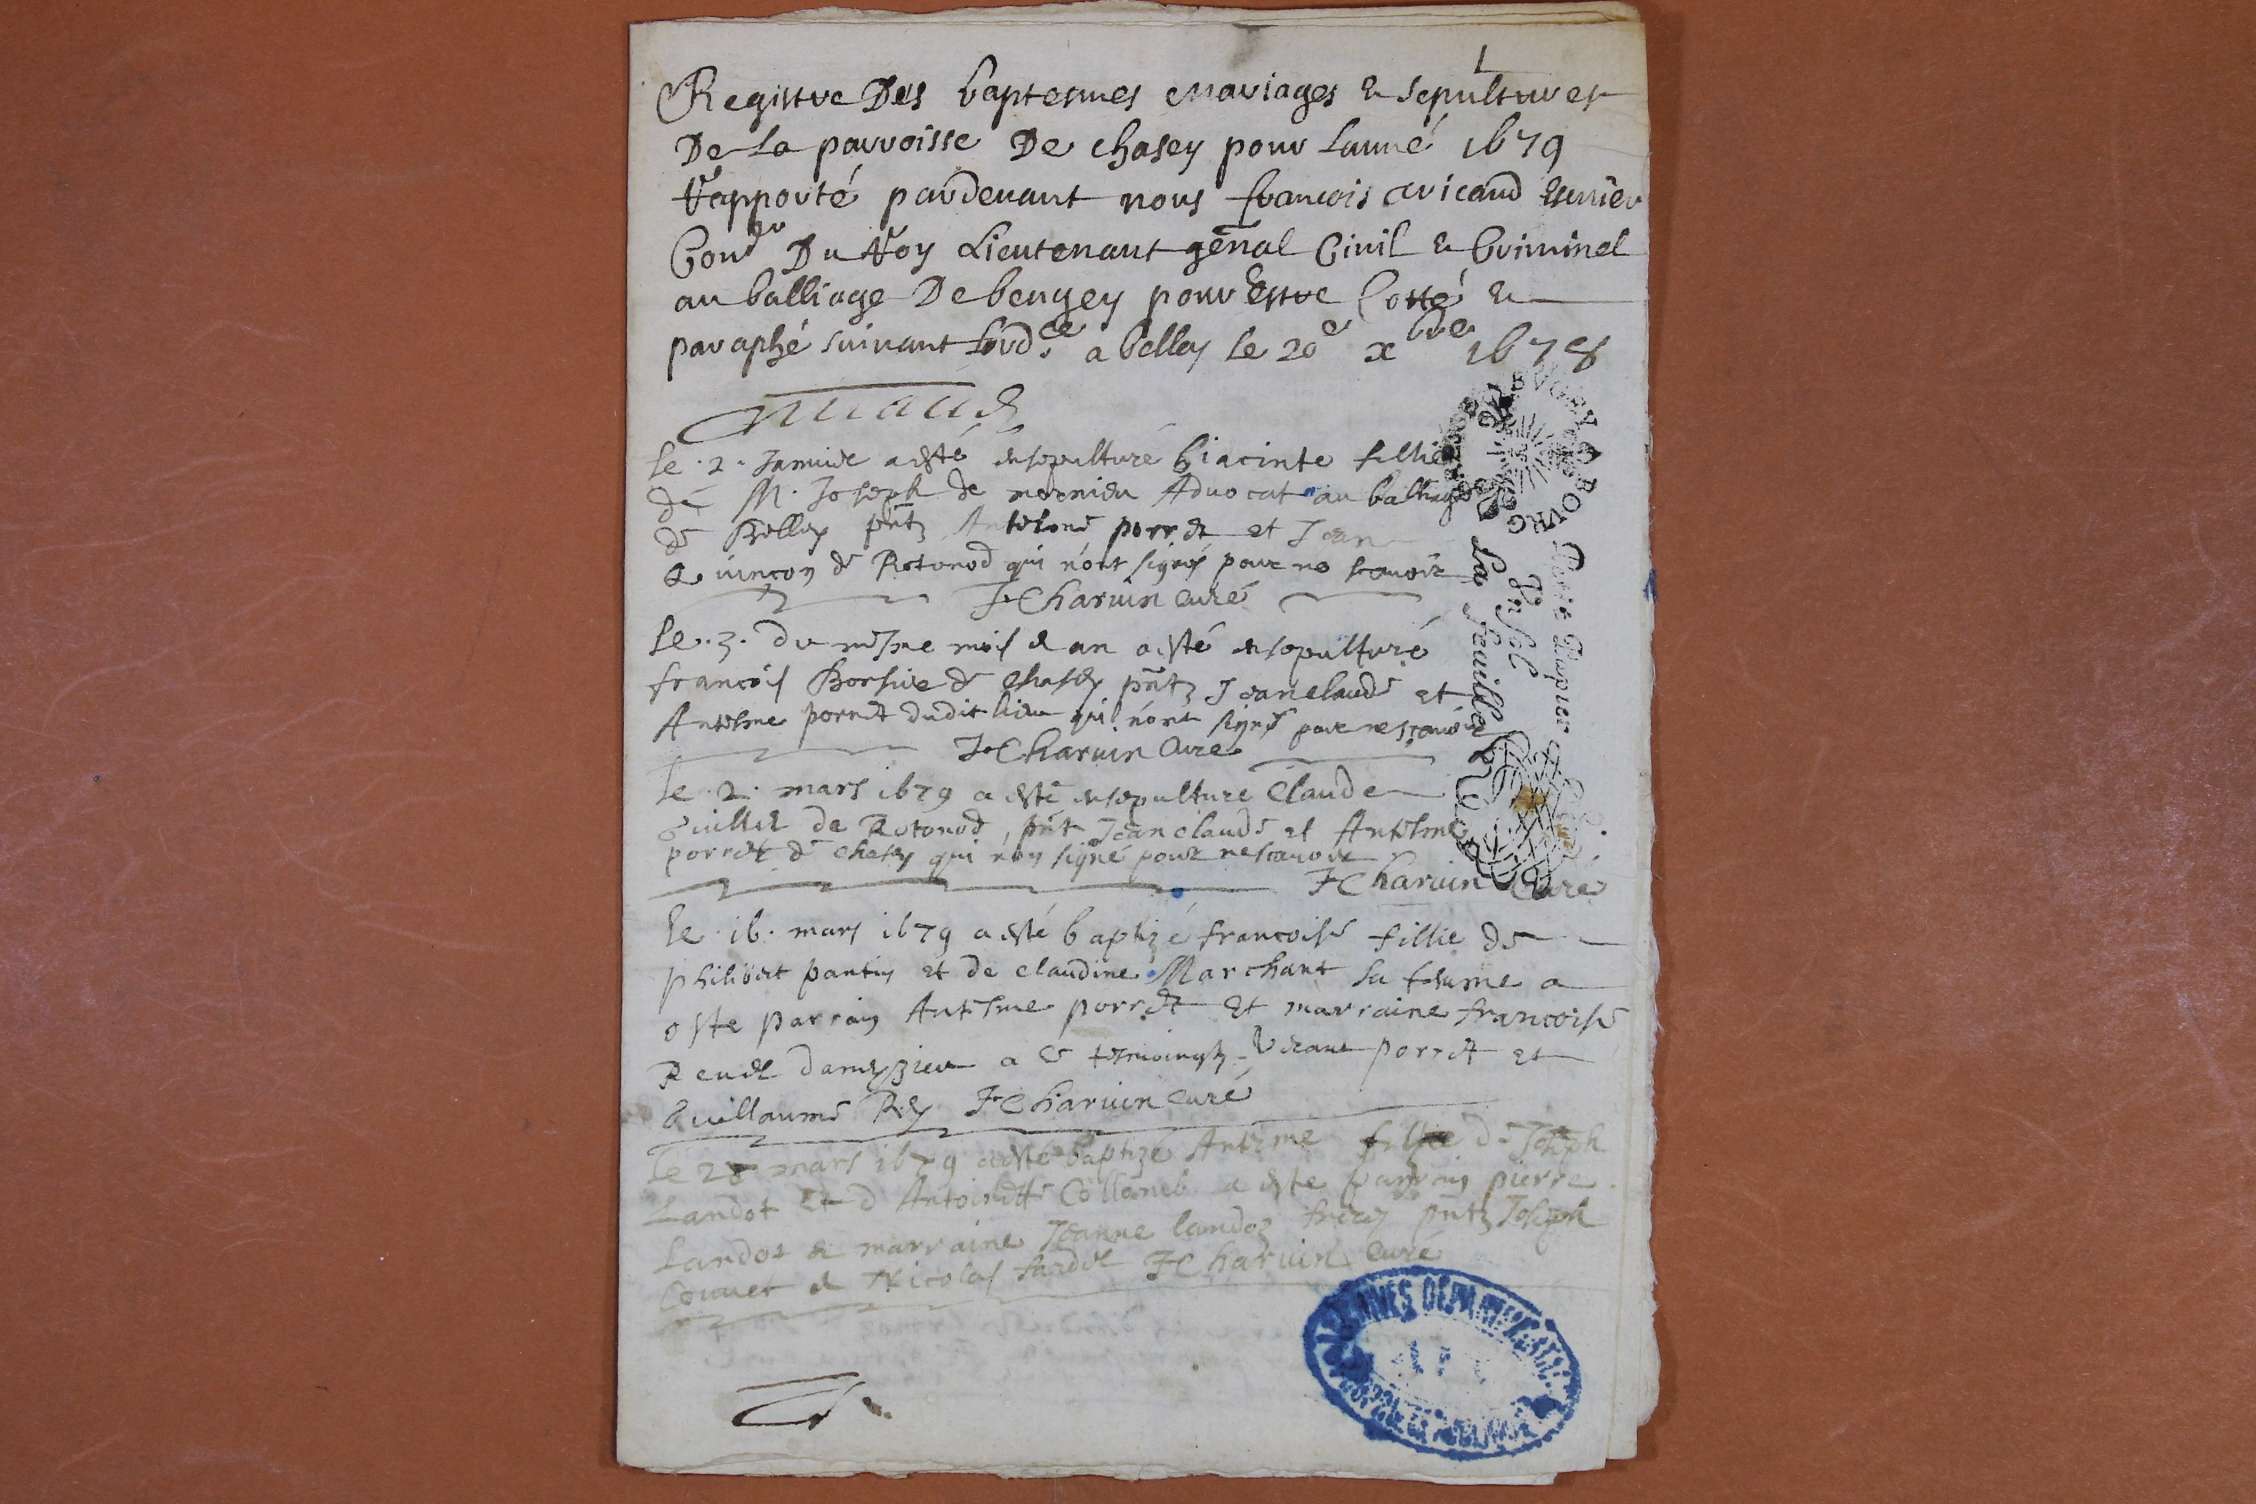 1
Registre Des baptesmes mariages & sepultures
De La parroisse De chasey pour Lanné 1679
Rapporté pardevant nous francois
Con.er Du Roy Lieutenant genal Civil & Criminel
au balliage De beugey pour Estre Cotté &
paraphé suivant Lord.ce a belley le 20e xbre 1678
le .2. Janvier a esté ensepulturé hiacinte fillie
de M. Joseph de mornieu Advocat au balliage
de Belley pntz Antelme porret et Jean
Quincon de Rotonod qui n'ont signés pour ne scavoir
F Charvin curé
le .3. du mesme mois & an a esté ensepulturé
francois de Chasey pntz Jean claude et
Antelme porret dudit lieu qui n'ont signés pour ne scavoir
F Charvin Curé
le .2. mars 1679 a esté ensepulturé Claude
Guillet de Rotonod, pnt Jean claude et Antelme
porret de Chasey qui n'on signé pour ne scavoir
F Charvin Curé
le .16. mars 1679 a esté baptizé francoise fillie de
philibert pantin et de claudine Marchant sa femme a
esté parrain Antelme porret et marraine francoise
Revel dameyzieu a esté tesmoings porret et
Guillaume Rey F Charvin curé
le 28 mars 1679 a esté baptizé Antelme fillie de Joseph
Landot et d Antoinette Collomb a esté parrain pierre
Landot & marraine Jeanne landoz pntz Joseph
& Nicolas F Charvin curé
BUGEY
BOURG
Petit Papier
Un Sol
La feuille
ARCHIVES DEPARTEMENTALES
AIN